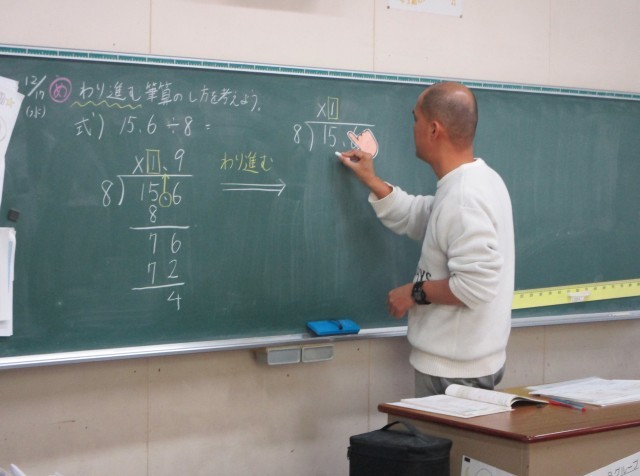 12/17 (水) め わり進む筆算のし方を考えよう。
式) 15.6÷8=
×1.9
8)15.6
8
76
72
4
わり進む
×1
8)15.6